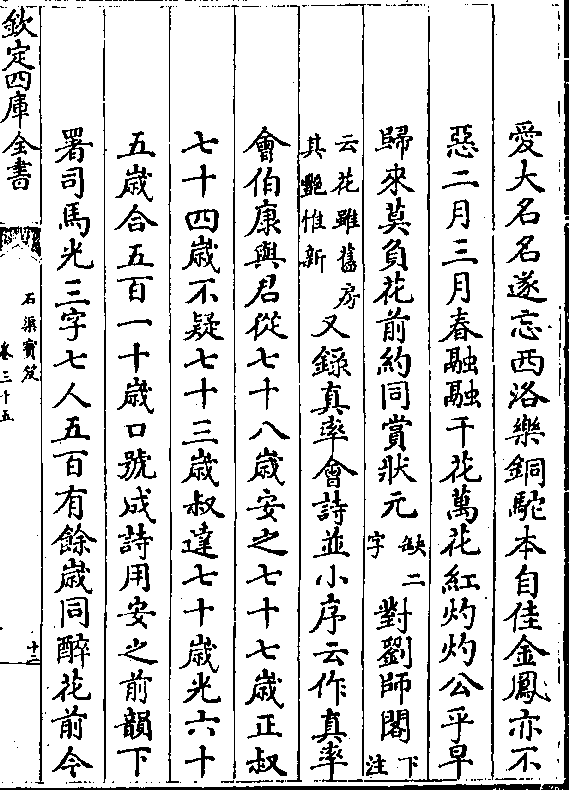 愛大名名遂忘西洛樂銅駝本自佳金鳳亦不
惡二月三月春融融千花萬花紅灼灼公乎早
歸來莫負花前約同賞狀元缺二字對劉師閣下注
云花雖舊房其艷惟新又錄真率會詩並小序云作真率
會伯康與君從七十八歲安之七十七歲正叔
七十四歲不疑七十三歲叔達七十歲光六十
五歲合五百一十歲口號成詩用安之前韻下
署司馬光三字七人五百有餘歲同醉花前今
欽定四庫全書
石渠寶笈
卷三十五
十三